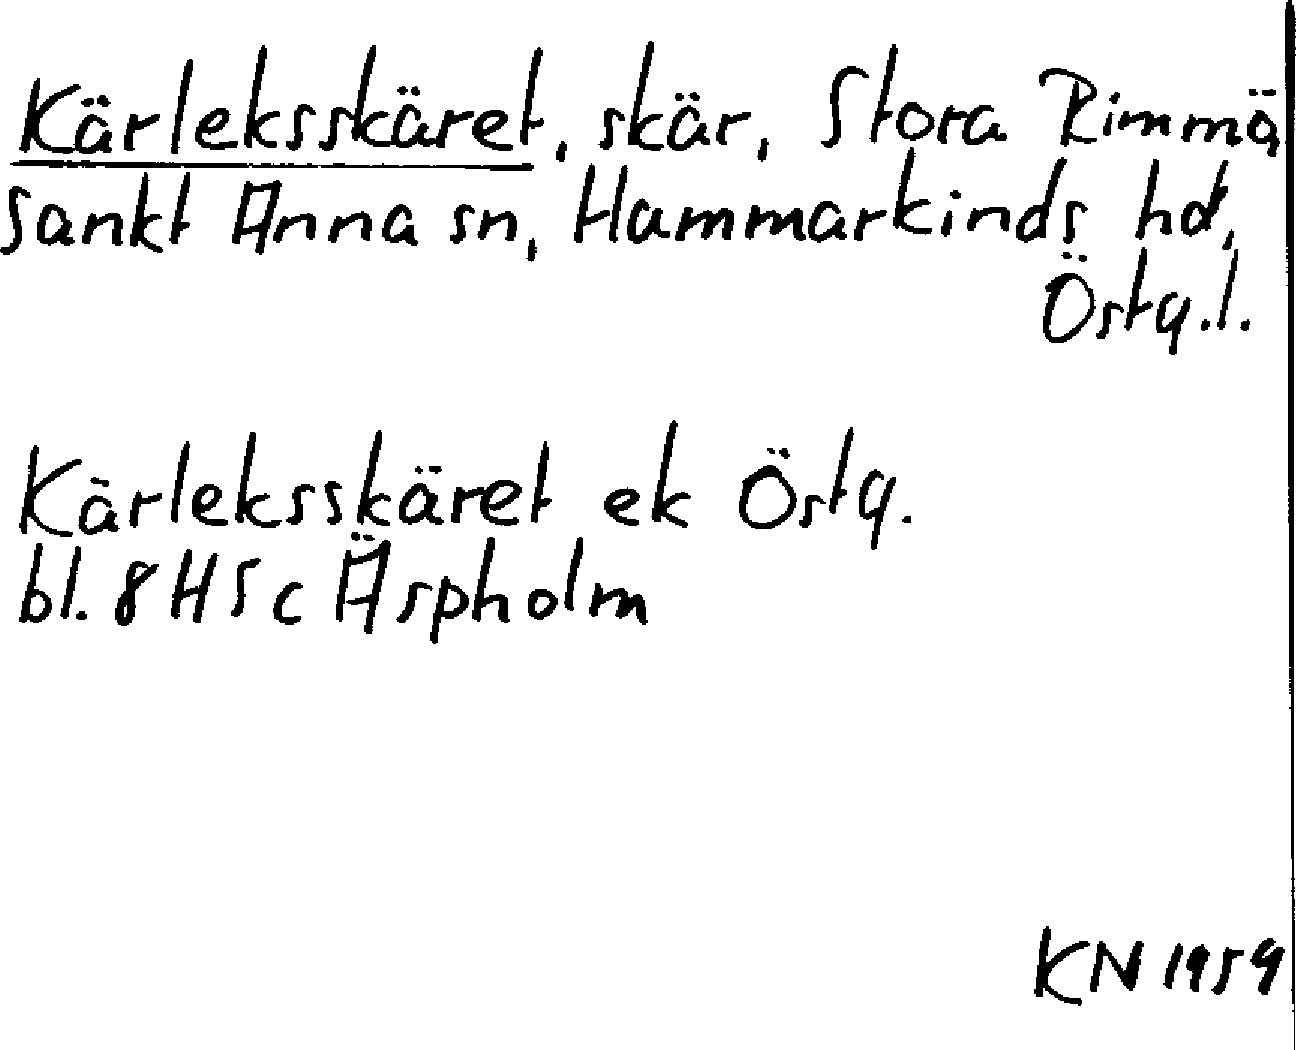 Kärleksskäret, skär, Stora Rimmö,
Sankt Anna sn, Hammarkinds hd,
Östg.l.
Kärleksskäret ek Östg.
bl. 8 H 5 c Äspholm
KN 1959